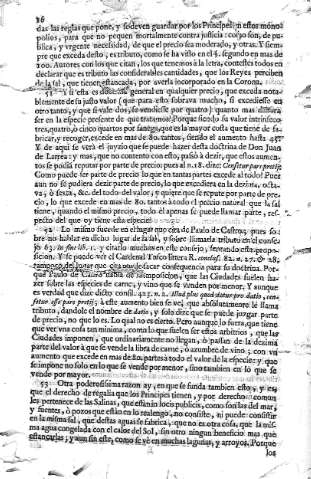 26
das las reglas que pone, y se deven guardar por los Principes en estos mono
polios, para que no pequen mortalmente contra justicia: como son, de pu-
blica, y urgente necesidad, de que el precio sea moderado, y otras. Y siem-
pre que exceda desto, es tributo, como se ha visto en el §. segundo en mas de
200. Autores con los que citan, los que tenemos a la letra, contestes todos en
declarar que es tributo las considerables cantidades, que los Reyes perciben
de la sal, que tienen estancada, por averla incorporado en la Corona.
51 Y si esta es doctrina general en qualquier precio, que exceda nota-
blemente de su justo valor (que para esto sobrava mucho, si excediesse en
otro tanto, y que si vale dos, se vendiesse por quatro) quanto mas
ser en la especie presente de que tratamos? Porque siendo su valor intrinseco
tres, quatro, ò cinco quartos por fanega, que es la mayor costa que tiene de fa-
bricar, y recoger, excede en mas de 80. tantos, siendo el aumento hasta
Y de aqui se verà el juyzio que se puede hazer desta doctrina de Don Juan
de Larrea: y mas, que no contento con esto, passò à dezir, que estos aumen-
tos se podia reputar por parte de precio: pues al n. 18. dize:
Como puede ser parte de precio lo que en tantas partes excede al todo? Pues
aun no se pudiera dezir parte de precio, lo que excediera en la dezima, octa-
va, ò sexta, &c. del todo del valor; y quiere que se repute por parte de pre-
cio, lo que excede en mas de 80. tantos à todo el precio natural que la sal
tiene, quando el mismo precio, todo èl apenas se puede llamar parte, res-
pecto del que oy tiene esta especie?
52 Lo mismo sucede en el lugar que cita de Paulo de Castro; pues so-
bre no hablar en dicho lugar de la sal, y sobre llamarla tributo en el conse-
jo 63. y citarlo muchos en este consejo, sentando esta proposi-
cion. Y se puede ver el Cardenal Tusco littera R. conclus. 82. n. 27. & 28;
tampoco del lugar que cita puede sacar consequencia para su doctrina. Por-
que Paulo de Castro trata de las imposicion, que las Ciudades suelen ha-
zer sobre las especies de carne, y vino que se venden por menor. Y aunque
es verdad que dize dicto consil. 42. n. 2. Illud plus quod datur pro dacio, con-
setur esse pars pretij; à este aumento bien se vè, que absolutamente le llama
tributo, dandole el nombre de dacio, y solo dize que se puede juzgar parte
de precio, no que lo es. Lo qual no es cierto. Pero aunque lo fuera, que tiene
que ver una cosa tan minima, como lo que suelen ser estos arbitrios, que las
Ciudades imponen, que ordinariamente no llegan, ò passan de la dezima
parte del valor à que se vende la libra de carne, ò azumbre de vino; con un
aumento que excede en mas de 80. partes à todo el valor de la especie: y que
se impone no solo en lo que se vende por menor, sino tambien en lo que se
vende por mayor.
53 Otra poderosissima razon ay, en que se funda tambien esto, y es,
que el derecho de regalia que los Principes tienen, y por derecho comun
les pertenece de las Salinas, que estàn en locis publicis, como son las del mar,
y fuentes, ò pozos que estàn en lo realengo, no consiste, ni puede consistir
en la misma sal, que destas aguas se fabrica, que no es otra cosa, que la mis-
ma agua congelada con el calor del Sol, sin otro ningun beneficio mas que
estancarlas; y aun sin este, como se vè en muchas lagunas, y arroyos. Porque
los